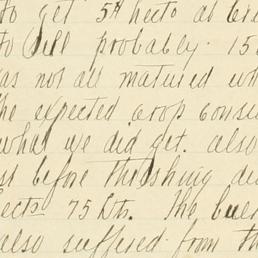 to get 54 hects at
to probably 15
as not all matured wh
he expected crop
what we did get. also
before threshing
ects 75 lts. The
also suffered from th